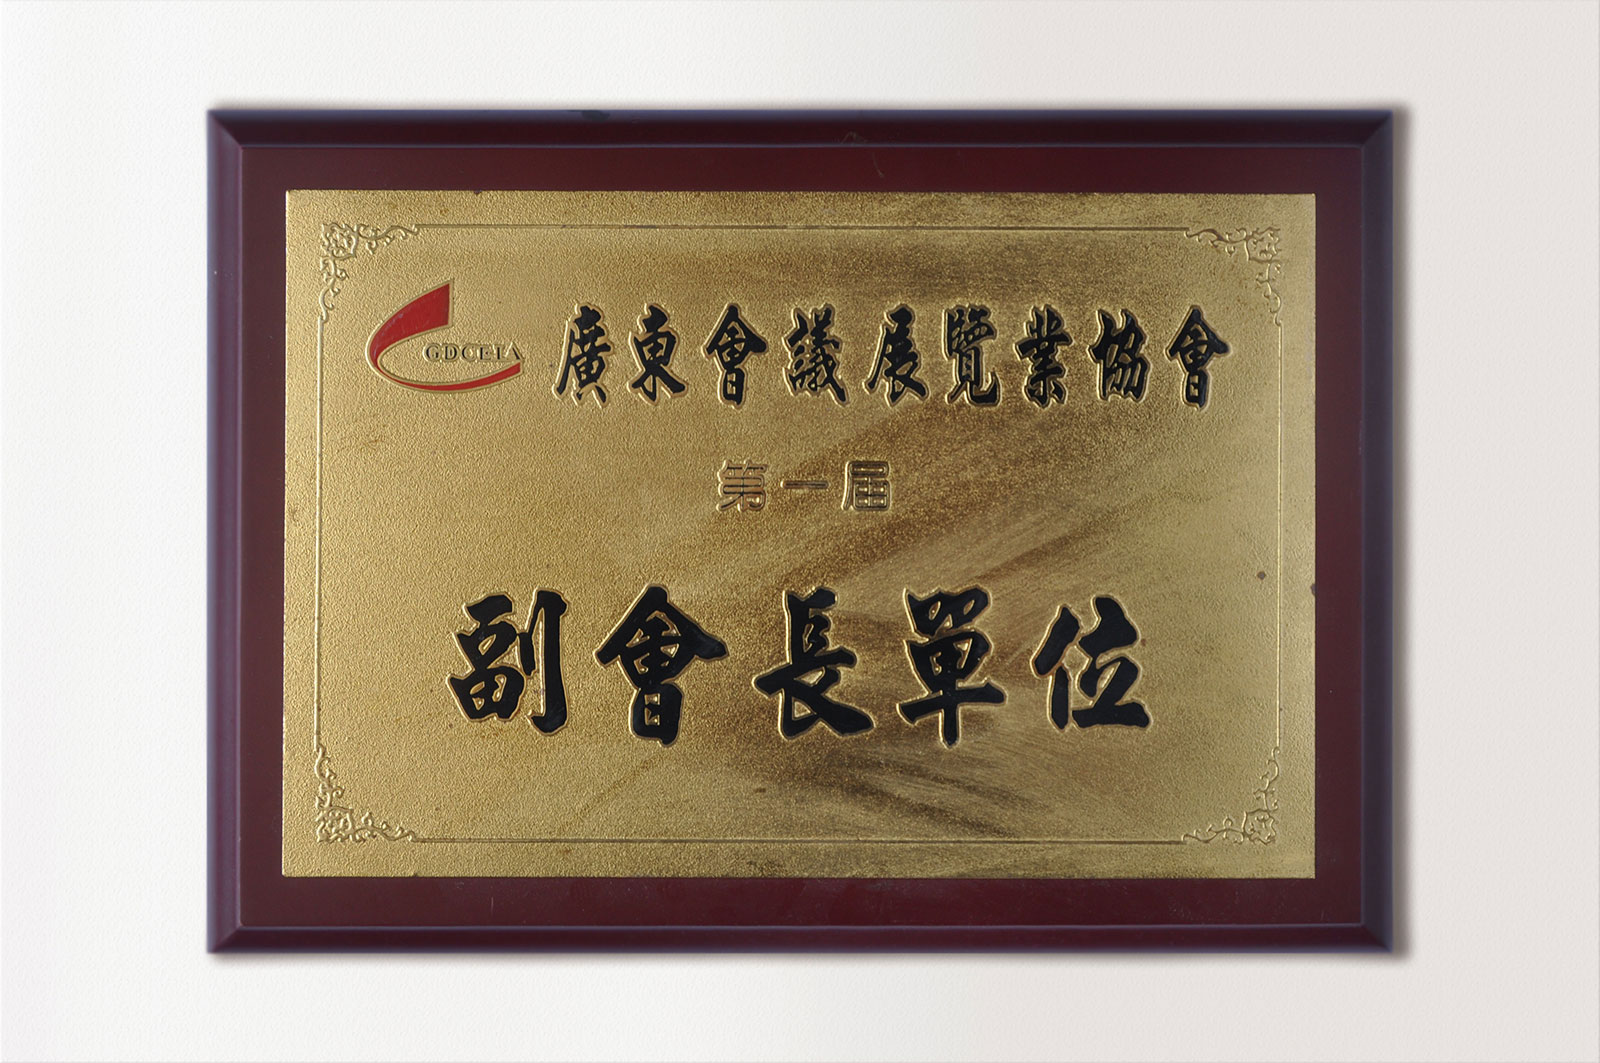 GDCEIA 廣東會議展覽業協會
第一届
副會長單位